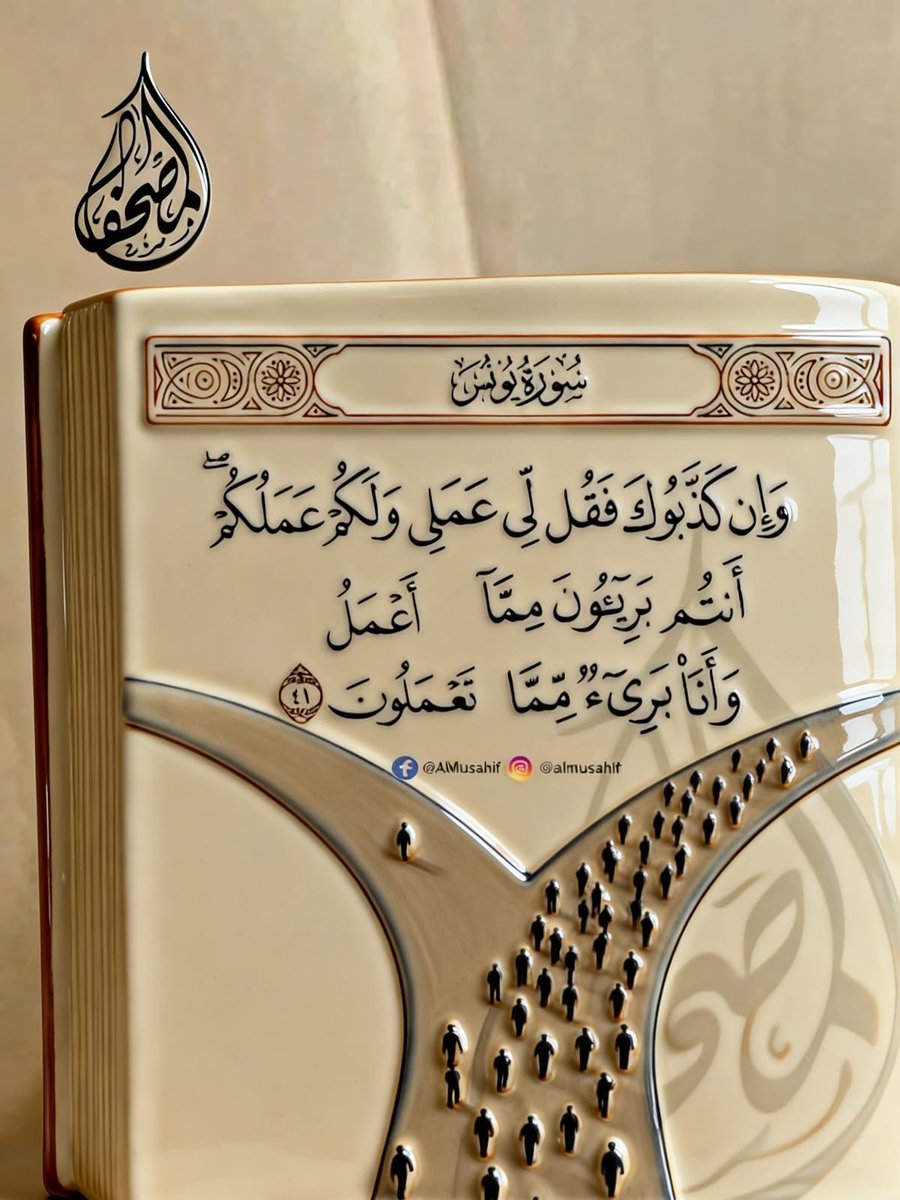 المصاحف
سُورَةُ يُونُسَ
وَإِن كَذَّبُوكَ فَقُل لِّي عَمَلِي وَلَكُمْ عَمَلُكُمْ ۖ
أَنتُم بَرِيٓـُٔونَ مِمَّآ أَعْمَلُ
وَأَنَا۠ بَرِيٓءٌ مِّمَّا تَعْمَلُونَ ٤١
@AlMusahif @almusahif